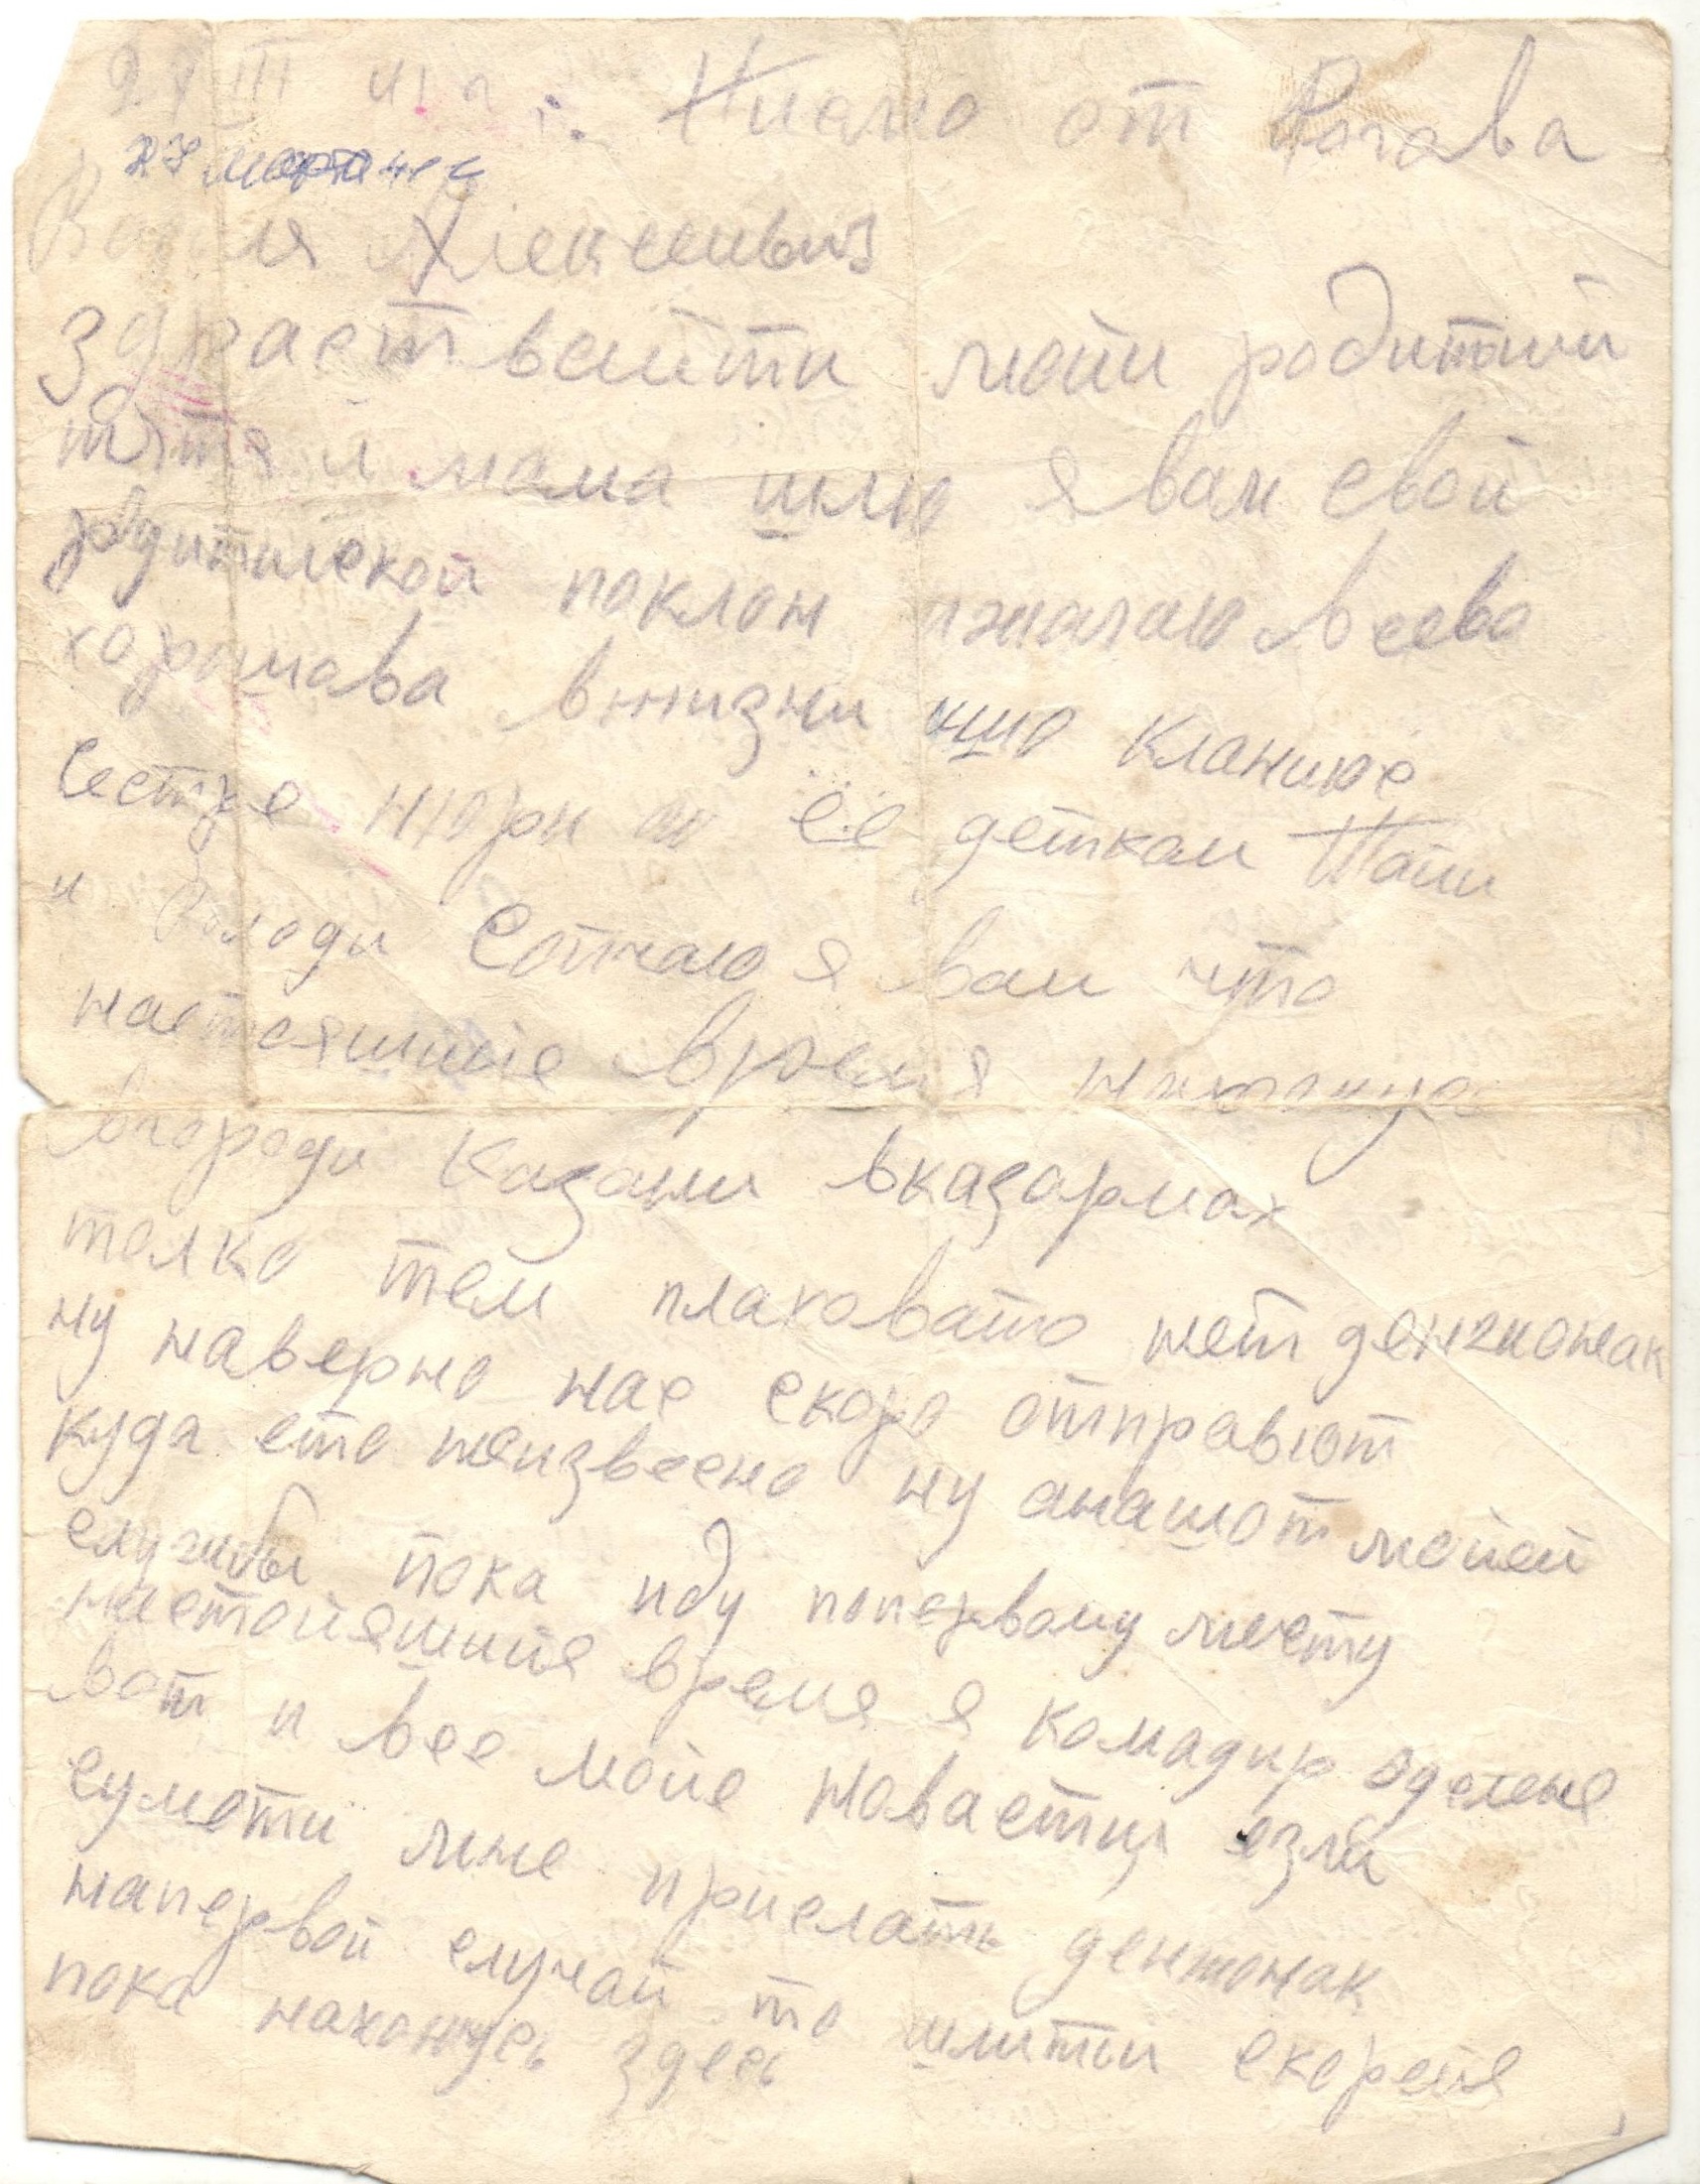 27 III 41 г. Письмо от Рогава
27 марта 41 г
Алексеевич
Здраствейти мойи родитили
тятя и мама шлю я вам свой
родитилской поклон и жилаю всево
хорошава вжизни ишо кланиюс
Сестре Нюри и её деткам Тайи
и Володи Сопчаю я вам что
настояшшие время нахожус
вгороди Казани вказармах
толко тем плаховато нет денжонак
ну наверно нас скоро отправют
куда ето неизвесно ну анашот мойей
службы пока иду попервому месту
настойяшшийе время я комадир оделеня
вот и все мойе навасти езли
сумети мне прислать денжонак
напервой случай то шлити скорейе
пока нахожусь здесь